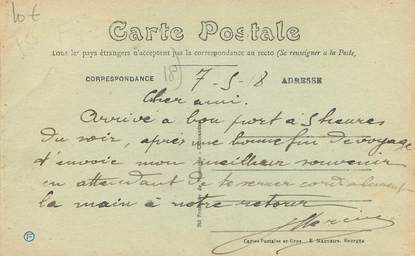 10 €
Carte Postale
Tous les pays étrangers n'acceptent pas la correspondance au recto (Se renseigner à la Poste)
CORRESPONDANCE
ADRESSE
18)
7-5-18
Cher ami.
Arrivé a bon port à 5 heures
du soir, après une bonne fin de voyage
t'envoie mon meilleur souvenir
en attendant de te serrer cordialement
la main à notre retour
Cartes Postales en Gros
Bourges